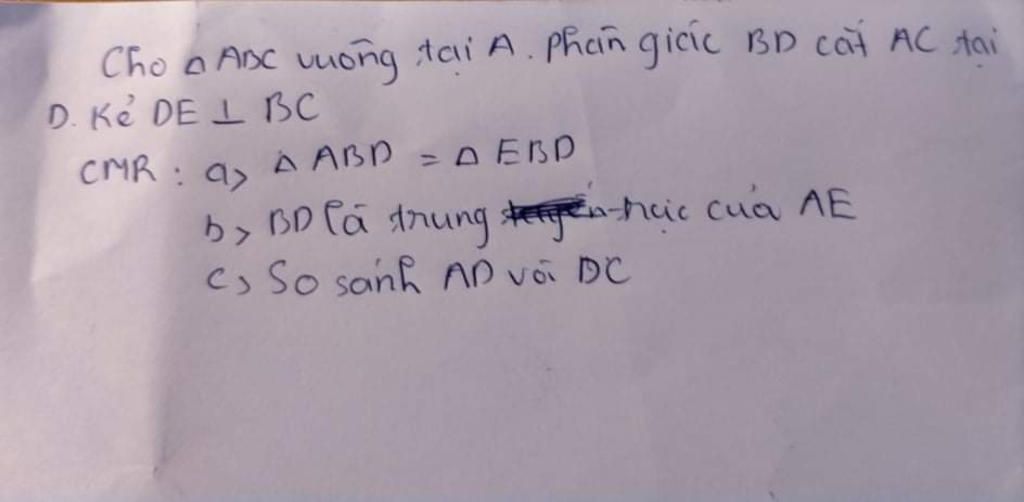 Cho △ ABC vuông tại A. phân giác BD cắt AC tại
D. Kẻ DE ⊥ BC
CMR : a> △ ABD = △ EBD
b> BD là trung trực của AE
c> So sánh AD với DC